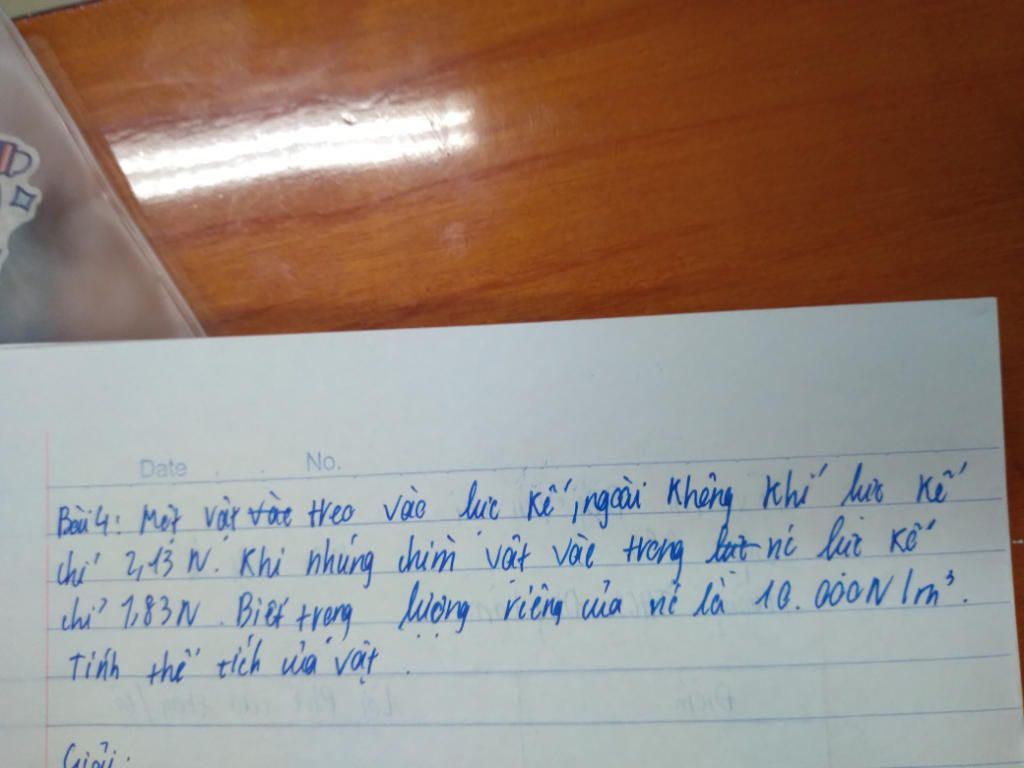 Date . . No.
Bài 4: Một vật treo vào lực kế, ngoài không khí lực kế
chỉ 2,13 N. Khi nhúng chìm vật vào trong nc lực kế
chỉ 1,83 N. Biết trọng lượng riêng của nc là 10.000N/m³.
Tính thể tích của vật.
Giải: